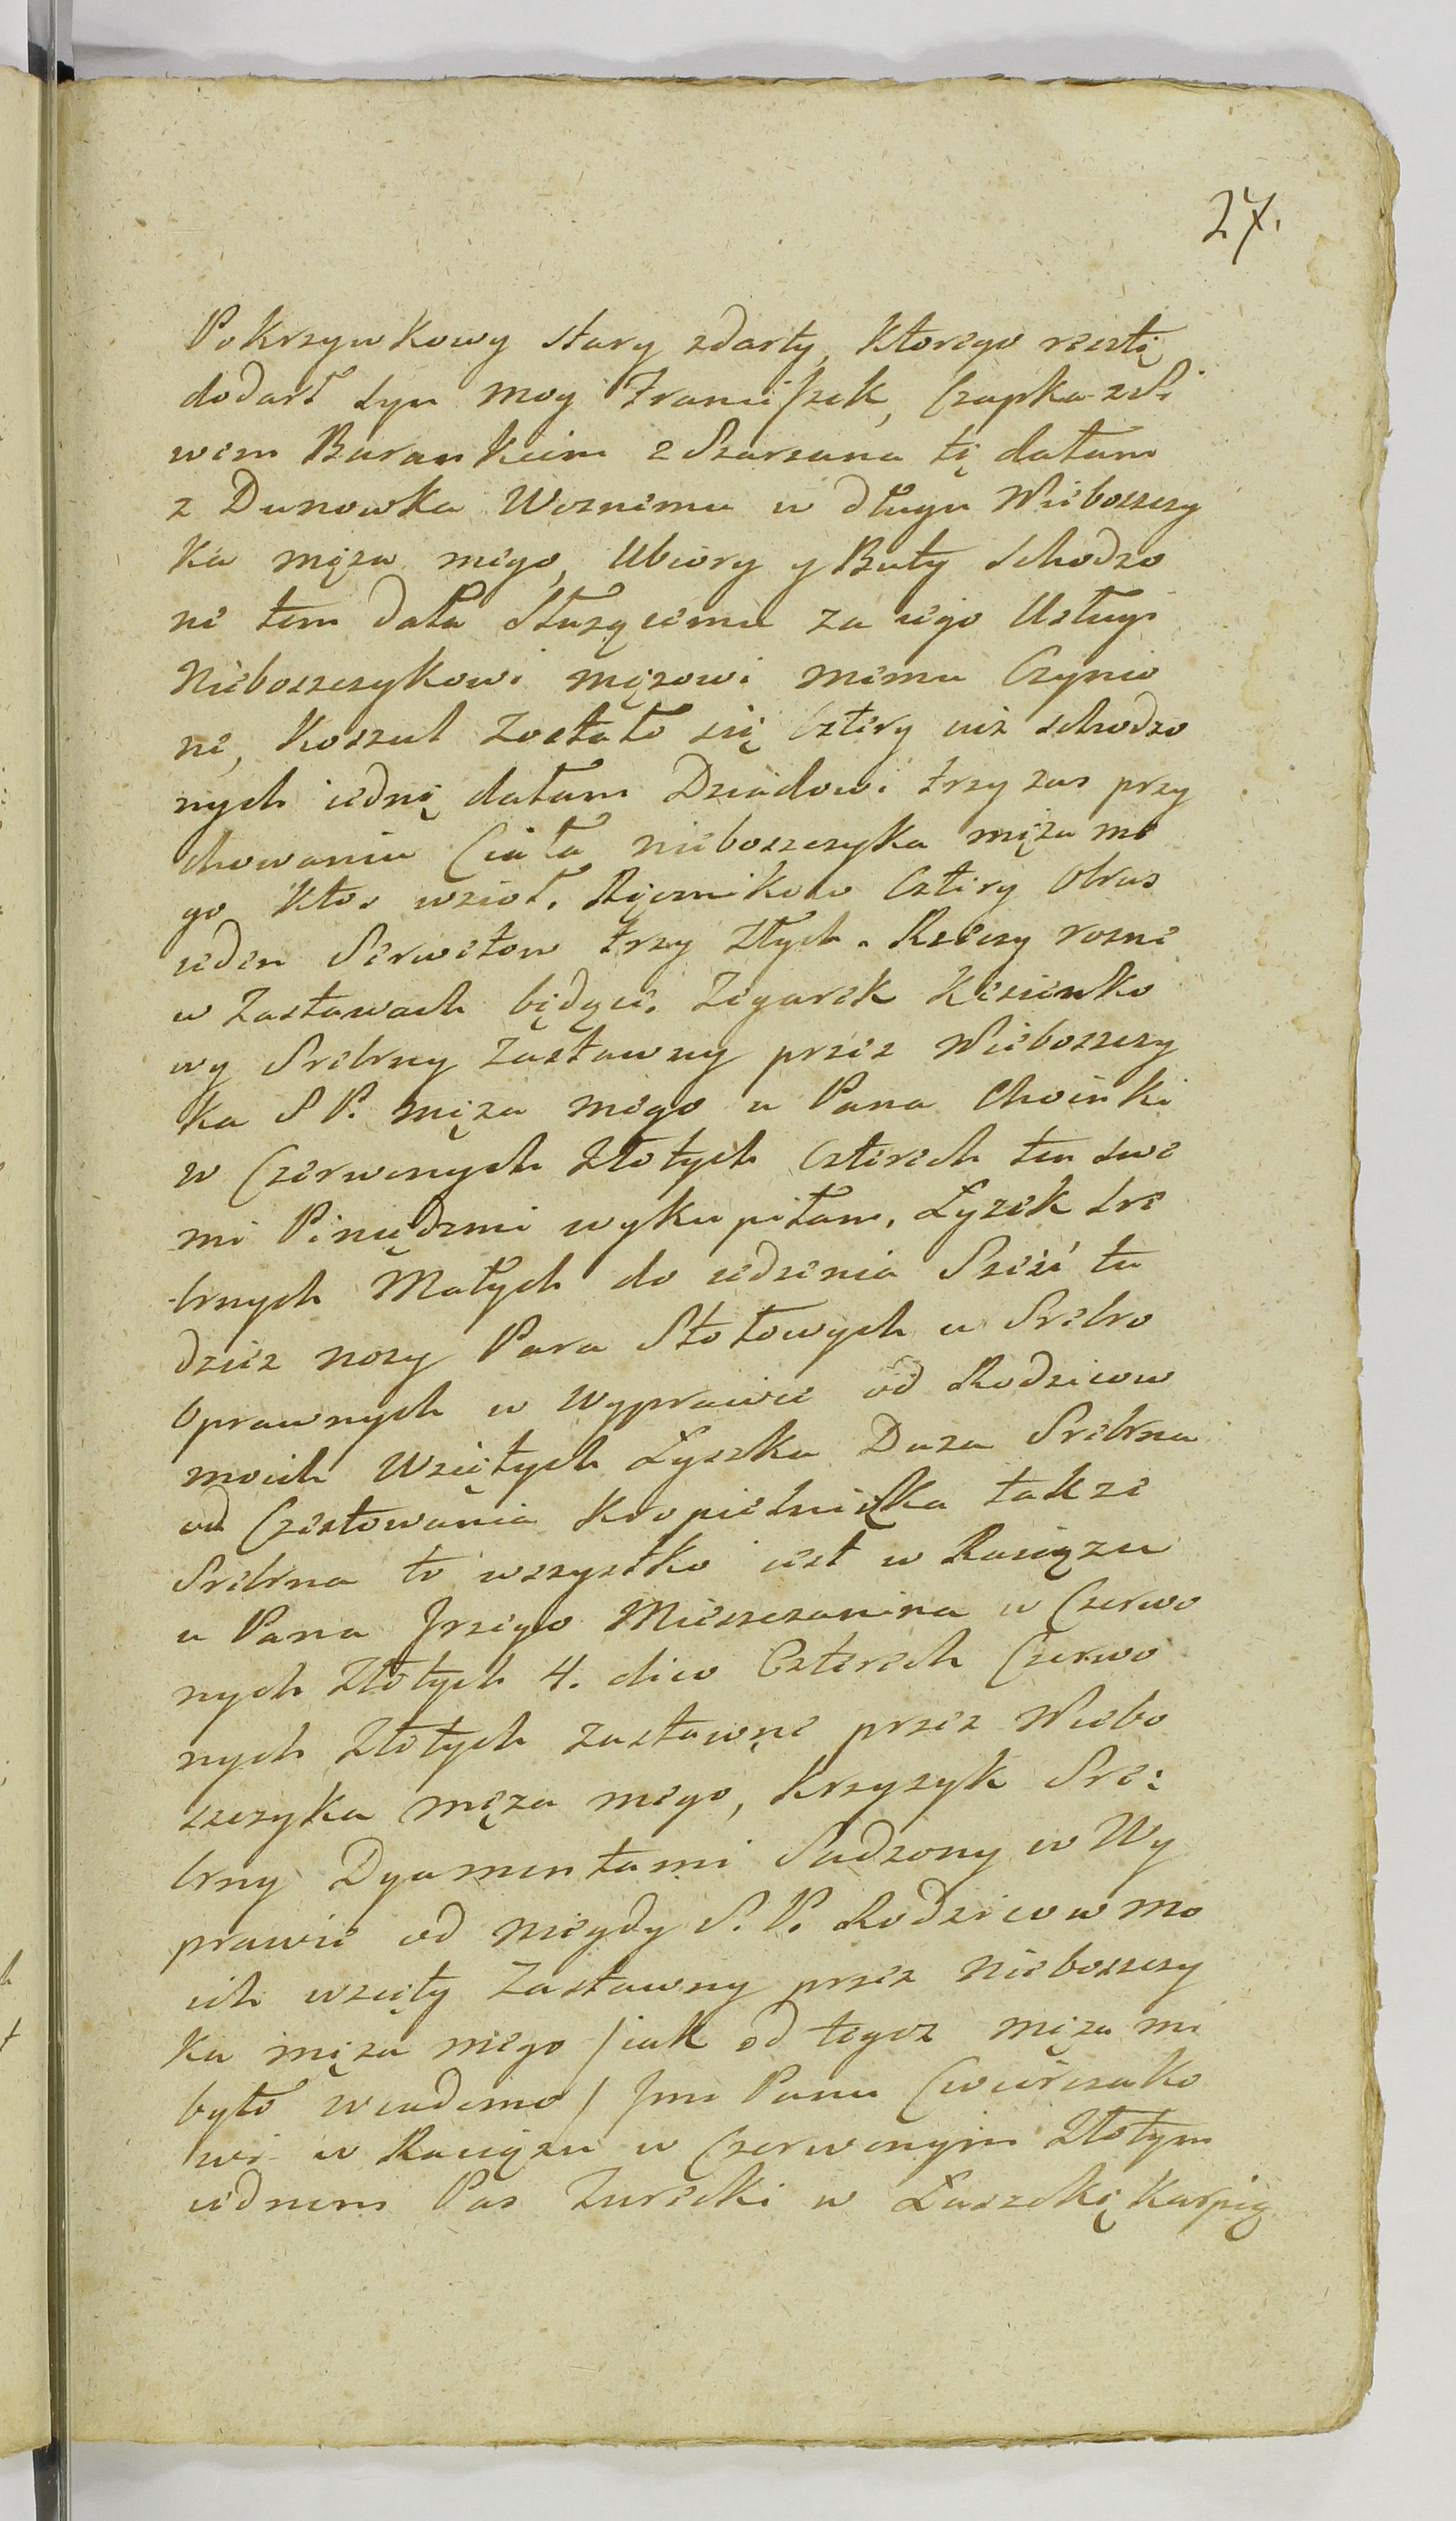 27.
Pokrzywkowy stary zdarty, Ktorego resztę
dodarł syn moy Franciszek, Czapka z Si
wem Barankiem 2 Szarzana tę dałam
z Dunowka Woznemu w długu Nieboszczy
ka męza mego, Ubiory y Buty schodzo
ne tem dała Słuząciemu za iego Usługi
Nieboszczykowi męzowi memu Czynio
ne, Koszul Zostało się Cztery iuz schodzo
nych iednę dałam Dziadowi trzy zas przy
chowaniu Ciała nieboszczyka męza me
go Ktos wzioł. Ręcznikow Cztiry Obrus
ieden Serwetow trzy Złych. Rzeczy rozne
w Zastawach będące. Zegarek Kiesienko
wy Srebrny Zastawny przez Nieboszczy
ka S P. męza mego u Pana Choinki
w Czerwonych Złotych Czterech ten swe
mi Pieniędzmi wykupiłam, Łyzek sre
brnych Małych do iedzenia Sześć tu
dziez nozy Para Stołowych w Srebro
Oprawnych w Wyprawie od Rodzicow
moich Wziętych Łyszka Duza Srebrna
od Czestowania Kropielniczka takze
Srebrna to wszystko iest w Raciązu
u Pana Jrzego Mieszczanina w Czerwo
nych Złotych 4. dico Czterech Czerwo
nych Złotych zastawne przez Niebo
szczyka męza mego, Krzyzyk Sre:
brny Dyamentami Sadzony w Wy
prawie od niegdy S. P. Rodzicow mo
ich wzięty Zastawny przez nieboszczy
ka męza mego /iak od tegoz męza mi
było wiadomo/ Jmc Panu Cwierczako
wi w Raciązu w Czerwonym Złotym
iednem Pas Turecki w Łaszczkę Karpią